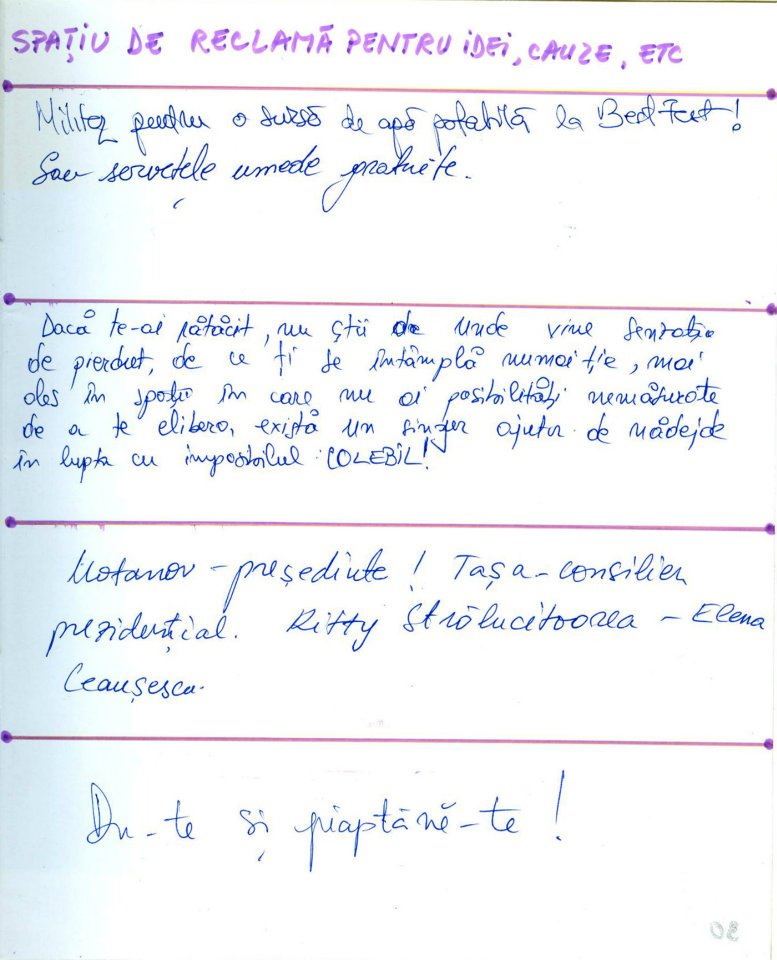 SPAȚIU DE RECLAMĂ PENTRU IDEI, CAUZE, ETC
Militez pentru o sursă de apă potabilă la BestFest!
Sau servețele umede gratuite.
Dacă te-ai rătăcit, nu știi de unde vine senzația
de pierdut, de ce ți se întâmplă numai ție, mai
ales în spații în care nu ai posibilități nemăsurate
de a te elibera, există un singur ajutor de nădejde
în lupta cu imposibilul: COLEBIL!
Motanov - președinte! Tașa - consilier
prezidențial. Kitty Strălucitoarea - Elena
Ceaușescu.
Du-te și piaptănă-te!